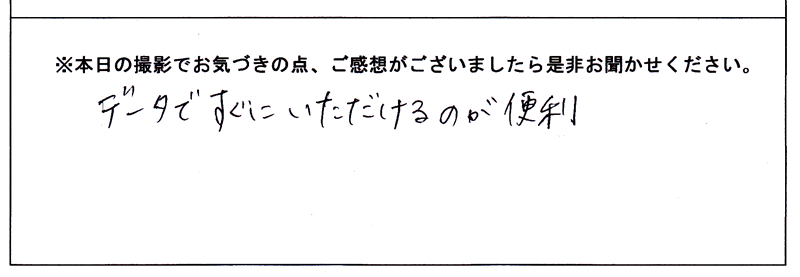 ※本日の撮影でお気づきの点、ご感想がございましたら是非お聞かせください。
データですぐにいただけるのが便利